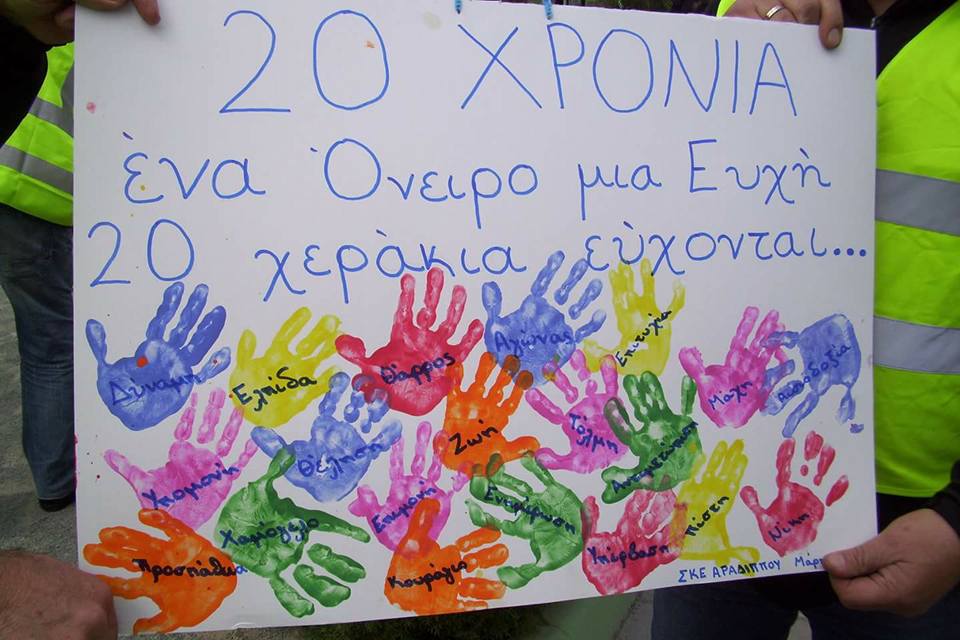 20 ΧΡΟΝΙΑ
ὲνα Όνειρο μια Ευχὴ
20 χερὰκια εὺχονται...
Δύναμη
Ελπίδα
Θάρρος
Αγώνας
Επιτυχία
Μάχη
Αισιοδοξία
Υπομονή
Θέληση
Ζωή
Τόλμη
Αντιμετώπιση
Χαμόγελο
Επιμονή
Ενημέρωση
Πίστη
Νίκη
Προσπάθεια
Κουράγιο
Υπέρβαση
ΣΚΕ ΑΡΑΔΙΠΠΟΥ